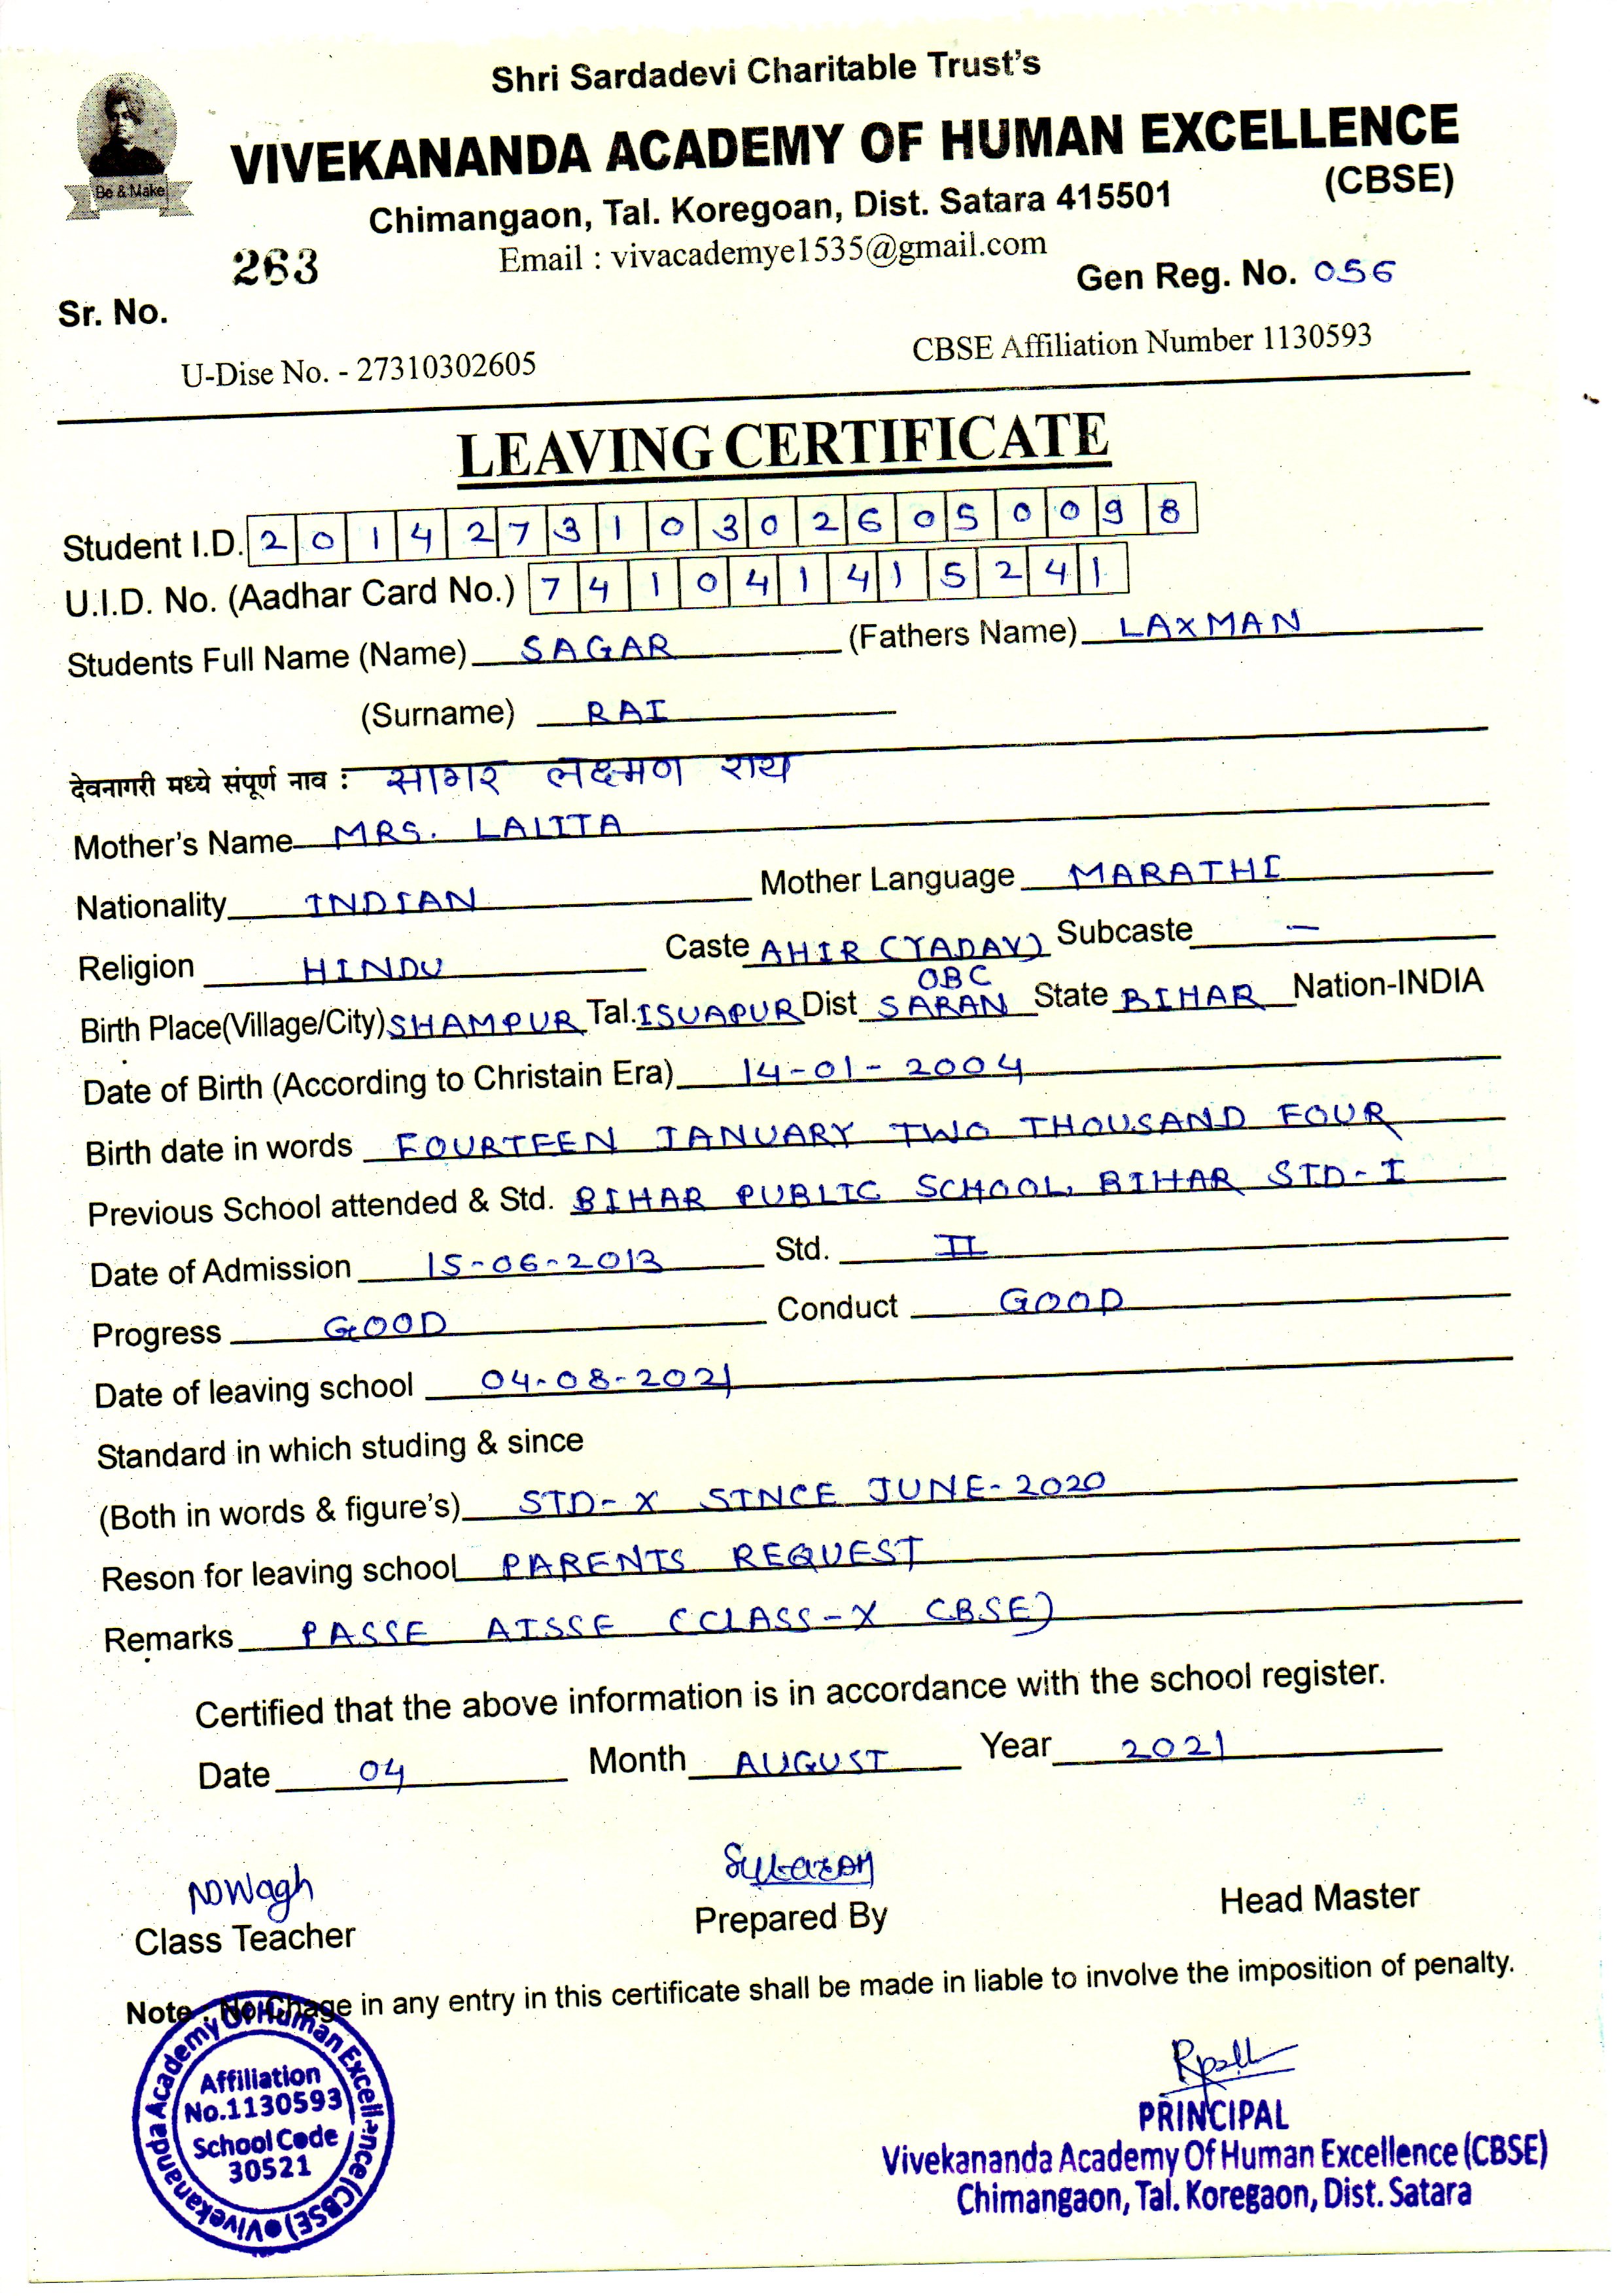 Shri Sardadevi Charitable Trust's
Be & Make
VIVEKANANDA ACADEMY OF HUMAN EXCELLENCE
(CBSE)
Chimangaon, Tal. Koregoan, Dist. Satara 415501
Email : vivacademye1535@gmail.com
Sr. No. 263 Gen Reg. No. 056
U-Dise No. - 27310302605 CBSE Affiliation Number 1130593
LEAVING CERTIFICATE
Student I.D. 2014273103026050098
U.I.D. No. (Aadhar Card No.) 741041415241
Students Full Name (Name) SAGAR (Fathers Name) LAXMAN
(Surname) RAI
देवनागरी मध्ये संपूर्ण नाव : सागर लक्ष्मण राय
Mother's Name MRS. LALITA
Nationality INDIAN Mother Language MARATHI
Religion HINDU Caste AHIR (YADAV) Subcaste —
OBC
Birth Place(Village/City) SHAMPUR Tal. ISUAPUR Dist SARAN State BIHAR Nation-INDIA
Date of Birth (According to Christain Era) 14-01-2004
Birth date in words FOURTEEN JANUARY TWO THOUSAND FOUR
Previous School attended & Std. BIHAR PUBLIC SCHOOL, BIHAR STD-I
Date of Admission 15-06-2013 Std. II
Progress GOOD Conduct GOOD
Date of leaving school 04-08-2021
Standard in which studing & since
(Both in words & figure's) STD- X SINCE JUNE-2020
Reson for leaving school PARENTS REQUEST
Remarks PASSE AISSE (CLASS-X CBSE)
Certified that the above information is in accordance with the school register.
Date 04 Month AUGUST Year 2021
NDWagh
Class Teacher Prepared By Head Master
Note : No Chage in any entry in this certificate shall be made in liable to involve the imposition of penalty.
Vivekananda Academy Of Human Excellence (CBSE)
Affiliation
No.1130593
School Code
30521
PRINCIPAL
Vivekananda Academy Of Human Excellence (CBSE)
Chimangaon, Tal. Koregaon, Dist. Satara